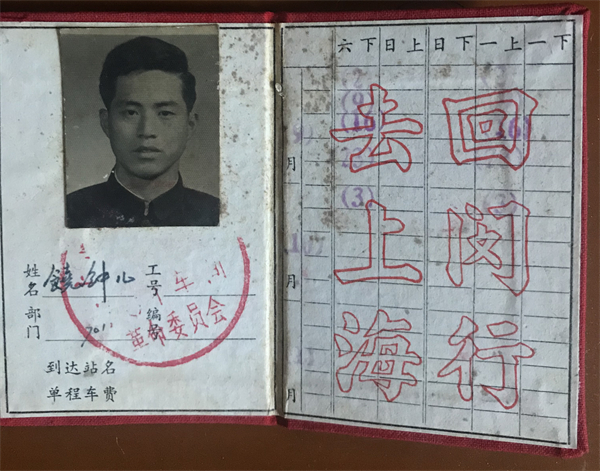 姓名 钟
工号
部门
编号
革命委员会
到达站名
单程车费
六下日上日下一上一下
去上海
回闵行
月
月
月
(3)